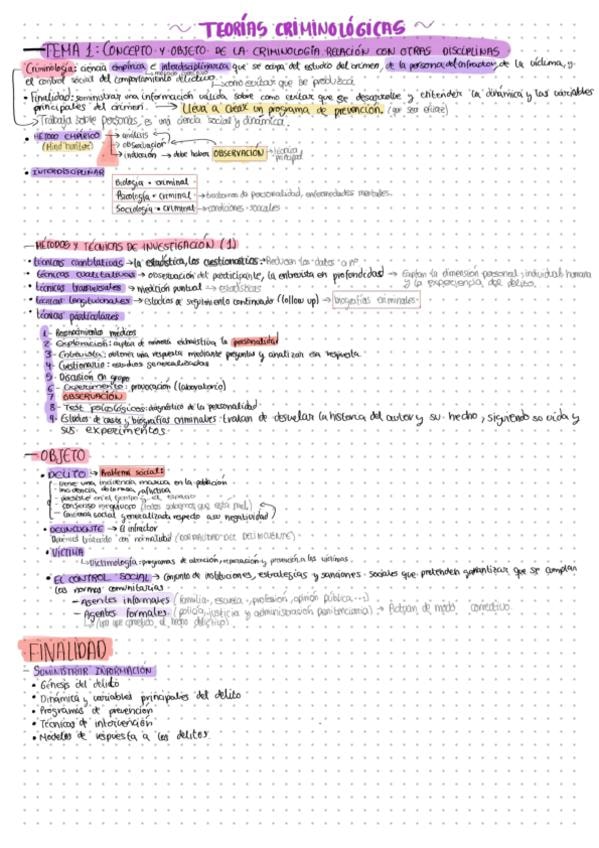 TEORÍAS CRIMINOLÓGICAS
TEMA 1: CONCEPTO Y OBJETO DE LA CRIMINOLOGÍA RELACIÓN CON OTRAS DISCIPLINAS
Criminología: ciencia empírica e interdisciplinaria que se ocupa del estudio del crimen, de la persona del infractor, de la víctima, y
el control social del comportamiento delictivo. → como evitar que se produzca
• Finalidad: suministrar una información válida sobre como evitar que se desarrolle y entender la dinámica y las variables
principales del crimen. → Lleva a crear un programa de prevención. (que sea eficaz)
→ Trabaja sobre personas, es una ciencia social y dinámica.
• MÉTODO EMPÍRICO → análisis
(Mind hunter) → observación
→ inducción → debe haber OBSERVACIÓN → técnica principal
• INTERDISCIPLINAR
Biología + criminal
Psicología + criminal → trastornos de personalidad, enfermedades mentales.
Sociología + criminal → condiciones sociales
MÉTODOS Y TÉCNICAS DE INVESTIGACIÓN (1)
• técnicas cuantitativas → la estadística, los cuestionarios. Reducen los datos a nº
• técnicas cualitativas → observación del participante, la entrevista en profundidad → Captan la dimensión personal, individual, humana
y la experiencia del delito.
• técnicas transversales → medición puntual → estadísticas
• técnicas longitudinales → estudios de seguimiento continuado (follow up) → biografías criminales.
• técnicas particulares
1 - Reconocimientos médicos
2 - Exploración: capta de manera exhaustiva la personalidad
3 - Entrevista: obtener una respuesta mediante preguntas y analizar esa respuesta.
4 - Cuestionario: estudios generalizados
5 - Discusión en grupo
6 - Experimento: provocación (laboratorio)
7 OBSERVACIÓN
8 - Test psicológicos: diagnóstico de la personalidad
9 - Estudios de casos y biografías criminales: tratan de desvelar la historia del autor y su hecho, siguiendo su vida y
sus experimentos.
OBJETO
• DELITO → Problema social:
- tiene una incidencia masiva en la población
- incidencia dolorosa, aflictiva
- persiste en el tiempo y el espacio
- consenso inequívoco (todos sabemos que está mal)
- conciencia social generalizada respecto a su negatividad
• DELINCUENTE → El infractor
tratado con normalidad (NORMALIDAD DEL DELINCUENTE)
• VÍCTIMA
→ Victimología: programas de atención, reparación y prevención a las víctimas.
• EL CONTROL SOCIAL → Conjunto de instituciones, estrategias y sanciones sociales que pretenden garantizar que se cumplan
las normas comunitarias
- Agentes informales (familia, escuela, profesión, opinión pública...)
- Agentes formales (policía, justicia y administración penitenciaria) → Actúan de modo coercitivo.
→ (una vez cometido el hecho delictivo)
FINALIDAD
- SUMINISTRAR INFORMACIÓN
• Génesis del delito
• Dinámica y variables principales del delito
• Programas de prevención
• Técnicas de intervención
• Modelos de respuesta a los delitos